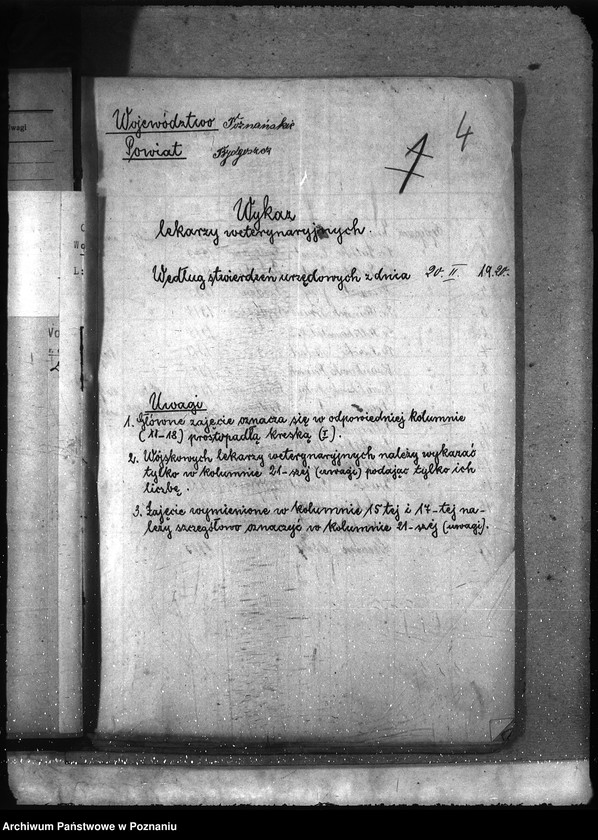 Województwo Poznańskie
Powiat Bydgoszcz
4
Wykaz
lekarzy weterynaryjnych.
Według stwierdzeń urzędowych z dnia 20. II. 1920.
Uwagi
1. Główne zajęcie oznacza się w odpowiedniej kolumnie
(11-18) prostopadłą kreską (I).
2. Wojskowych lekarzy weterynaryjnych należy wykazać
tylko w kolumnie 21-szej (uwagi) podając tylko ich
liczbę.
3. Zajęcie wymienione w kolumnie 15 tej i 17-tej na-
leży szczegółowo oznaczyć w kolumnie 21-szej (uwagi).
Archiwum Państwowe w Poznaniu